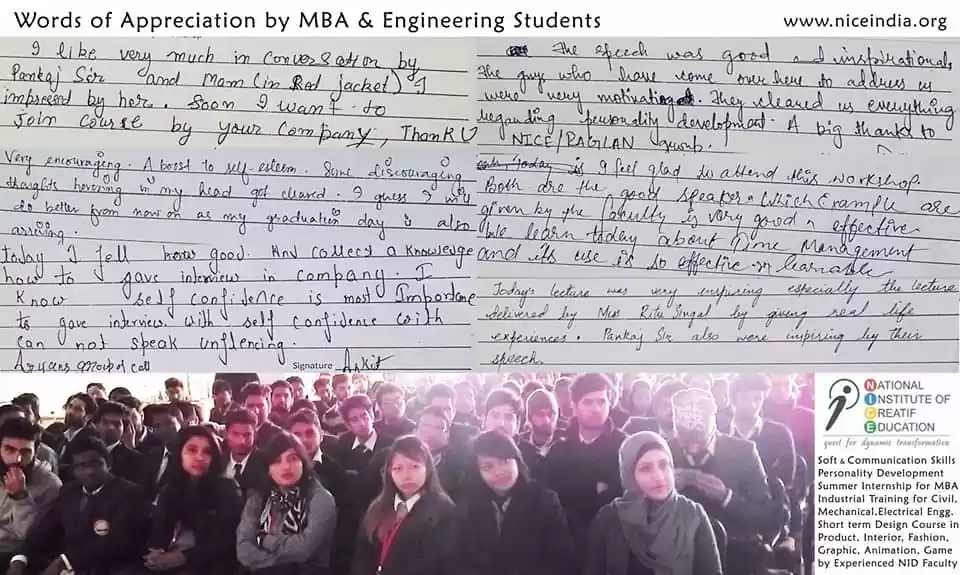 Words of Appreciation by MBA & Engineering Students
www.niceindia.org
I like very much in conversation by
Pankaj Sir and Mam (in Red jacket) I
impressed by her. Soon I want to
Join course by your Company, Thank U
Very encouraging. A boost to self-esteem. Some discouraging
thoughts hovering in my head got cleared. I guess I will
do better from now on as my graduation day is also
arriving.
Today I fell how good. And collect a knowledge
how to gave interview in company. I
Know self confidence is most Importane
to gave interview with self confidence with
can not speak unflencing.
Aryans group of
Signature Ankit
The speech was good and inspirational,
The guys who have come over here to address us
were very motivating. They cleared us everything
regarding personality development. A big thanks to
NICE/RAGLAN group.
today I feel glad to attend this workshop.
Both are the good speaker. Which Example are
given by the faculty is very good & effective.
We learn today about Time Management
and its use is so effective or learnable
Today's lecture was very inspiring especially the lecture
delivered by Miss Ritu Singal by giving real life
experiences. Pankaj Sir also were inspiring by their
speech.
NATIONAL
INSTITUTE OF
CREATIF
EDUCATION
quest for dynamic transformation
Soft & Communication Skills
Personality Development
Summer Internship for MBA
Industrial Training for Civil,
Mechanical,Electrical Engg.
Short term Design Course in
Product, Interior, Fashion,
Graphic, Animation, Game
by Experienced NID Faculty